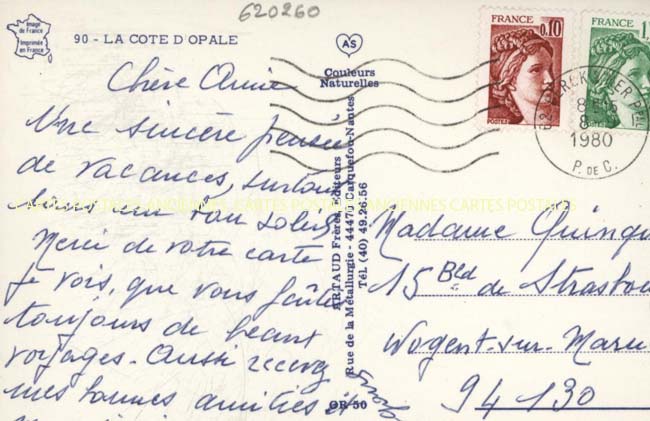 620260
Image
de France
Imprimée
en France
90 - LA COTE D'OPALE
AS
Couleurs
Naturelles
Chère Amie
Une sincère pensée
de vacances, surtout
sous un bon soleil
Merci de votre carte
je vois, que vous faites
toujours de beaux
voyages. Aussi recevez
mes bonnes amitiés et
ARTAUD Frères, Editeurs
Rue de la Métallurgie - 44470 Carquefou-Nantes
Tél. (40) 49.26.56
GR 50
FRANCE
0,10
POSTES
FRANCE
1,
62 BERCK MER PPAL
8 H 15
8
1980
P. DE C.
Madame
15 Bld de Strasbou
Nogent-sur-Marn
94 130
CARTES POSTALES ANCIENNES CARTES POSTALES ANCIENNES CARTES POSTALES